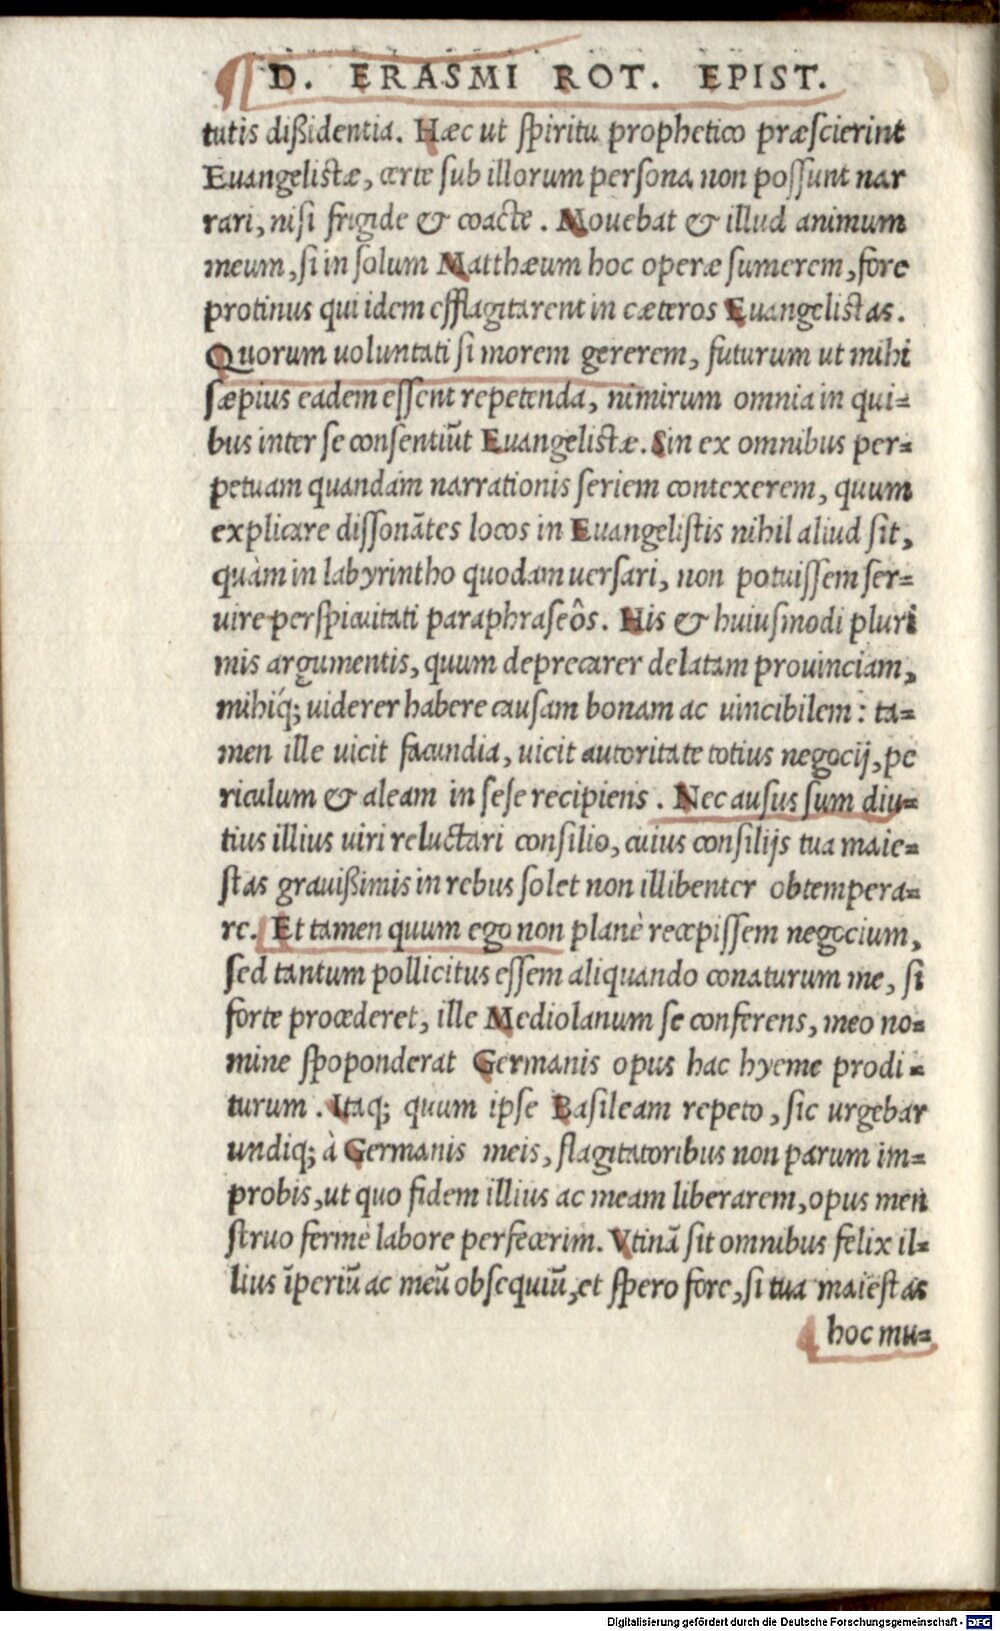 D. ERASMI ROT. EPIST.
tutis dißidentia. Hæc ut spiritu prophetico præscierint
Euangelistæ, certe sub illorum persona non possunt nar
rari, nisi frigide & coacte. Mouebat & illud animum
meum, si in solum Matthæum hoc operæ sumerem, fore
protinus qui idem efflagitarent in cæteros Euangelistas.
Quorum uoluntati si morem gererem, futurum ut mihi
sæpius eadem essent repetenda, nimirum omnia in qui-
bus inter se consentiūt Euangelistæ. Sin ex omnibus per-
petuam quandam narrationis seriem contexerem, quum
explicare dissonātes locos in Euangelistis nihil aliud sit,
quàm in labyrintho quodam uersari, non potuissem ser-
uire perspicuitati paraphraseôs. His & huiusmodi pluri
mis argumentis, quum deprecarer delatam prouinciam,
mihiq́; uiderer habere causam bonam ac uincibilem: ta-
men ille uicit facundia, uicit autoritate totius negocij, pe
riculum & aleam in sese recipiens. Nec ausus sum diu-
tius illius uiri reluctari consilio, cuius consilijs tua maie-
stas grauißimis in rebus solet non illibenter obtempera-
re. Et tamen quum ego non planè recepissem negocium,
sed tantum pollicitus essem aliquando conaturum me, si
forte procederet, ille Mediolanum se conferens, meo no-
mine spoponderat Germanis opus hac hyeme prodi-
turum. Itaq; quum ipse Basileam repeto, sic urgebar
undiq; à Germanis meis, flagitatoribus non parum im-
probis, ut quo fidem illius ac meam liberarem, opus men
struo fermè labore perfecerim. Vtinā sit omnibus felix il-
lius īperiū ac meū obsequiū, et spero fore, si tua maiestas
hoc mu-
Digitalisierung gefördert durch die Deutsche Forschungsgemeinschaft - DFG